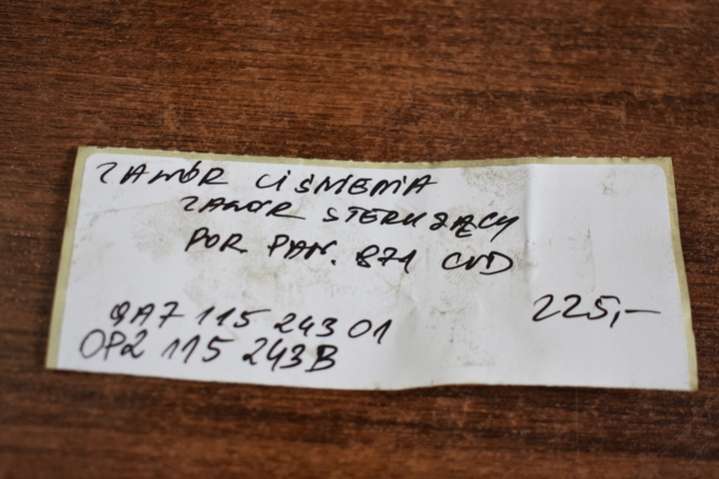 ZAWÓR CIŚNIENIA
ZAWÓR STERUJĄCY
POR PAN. 971 CVD
9A7 115 243 01
OP2 115 243B
225,-